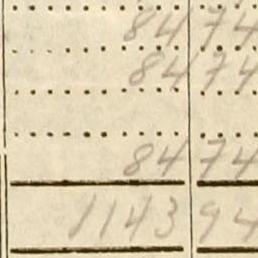 84 74
84 74
84 74
1143 94